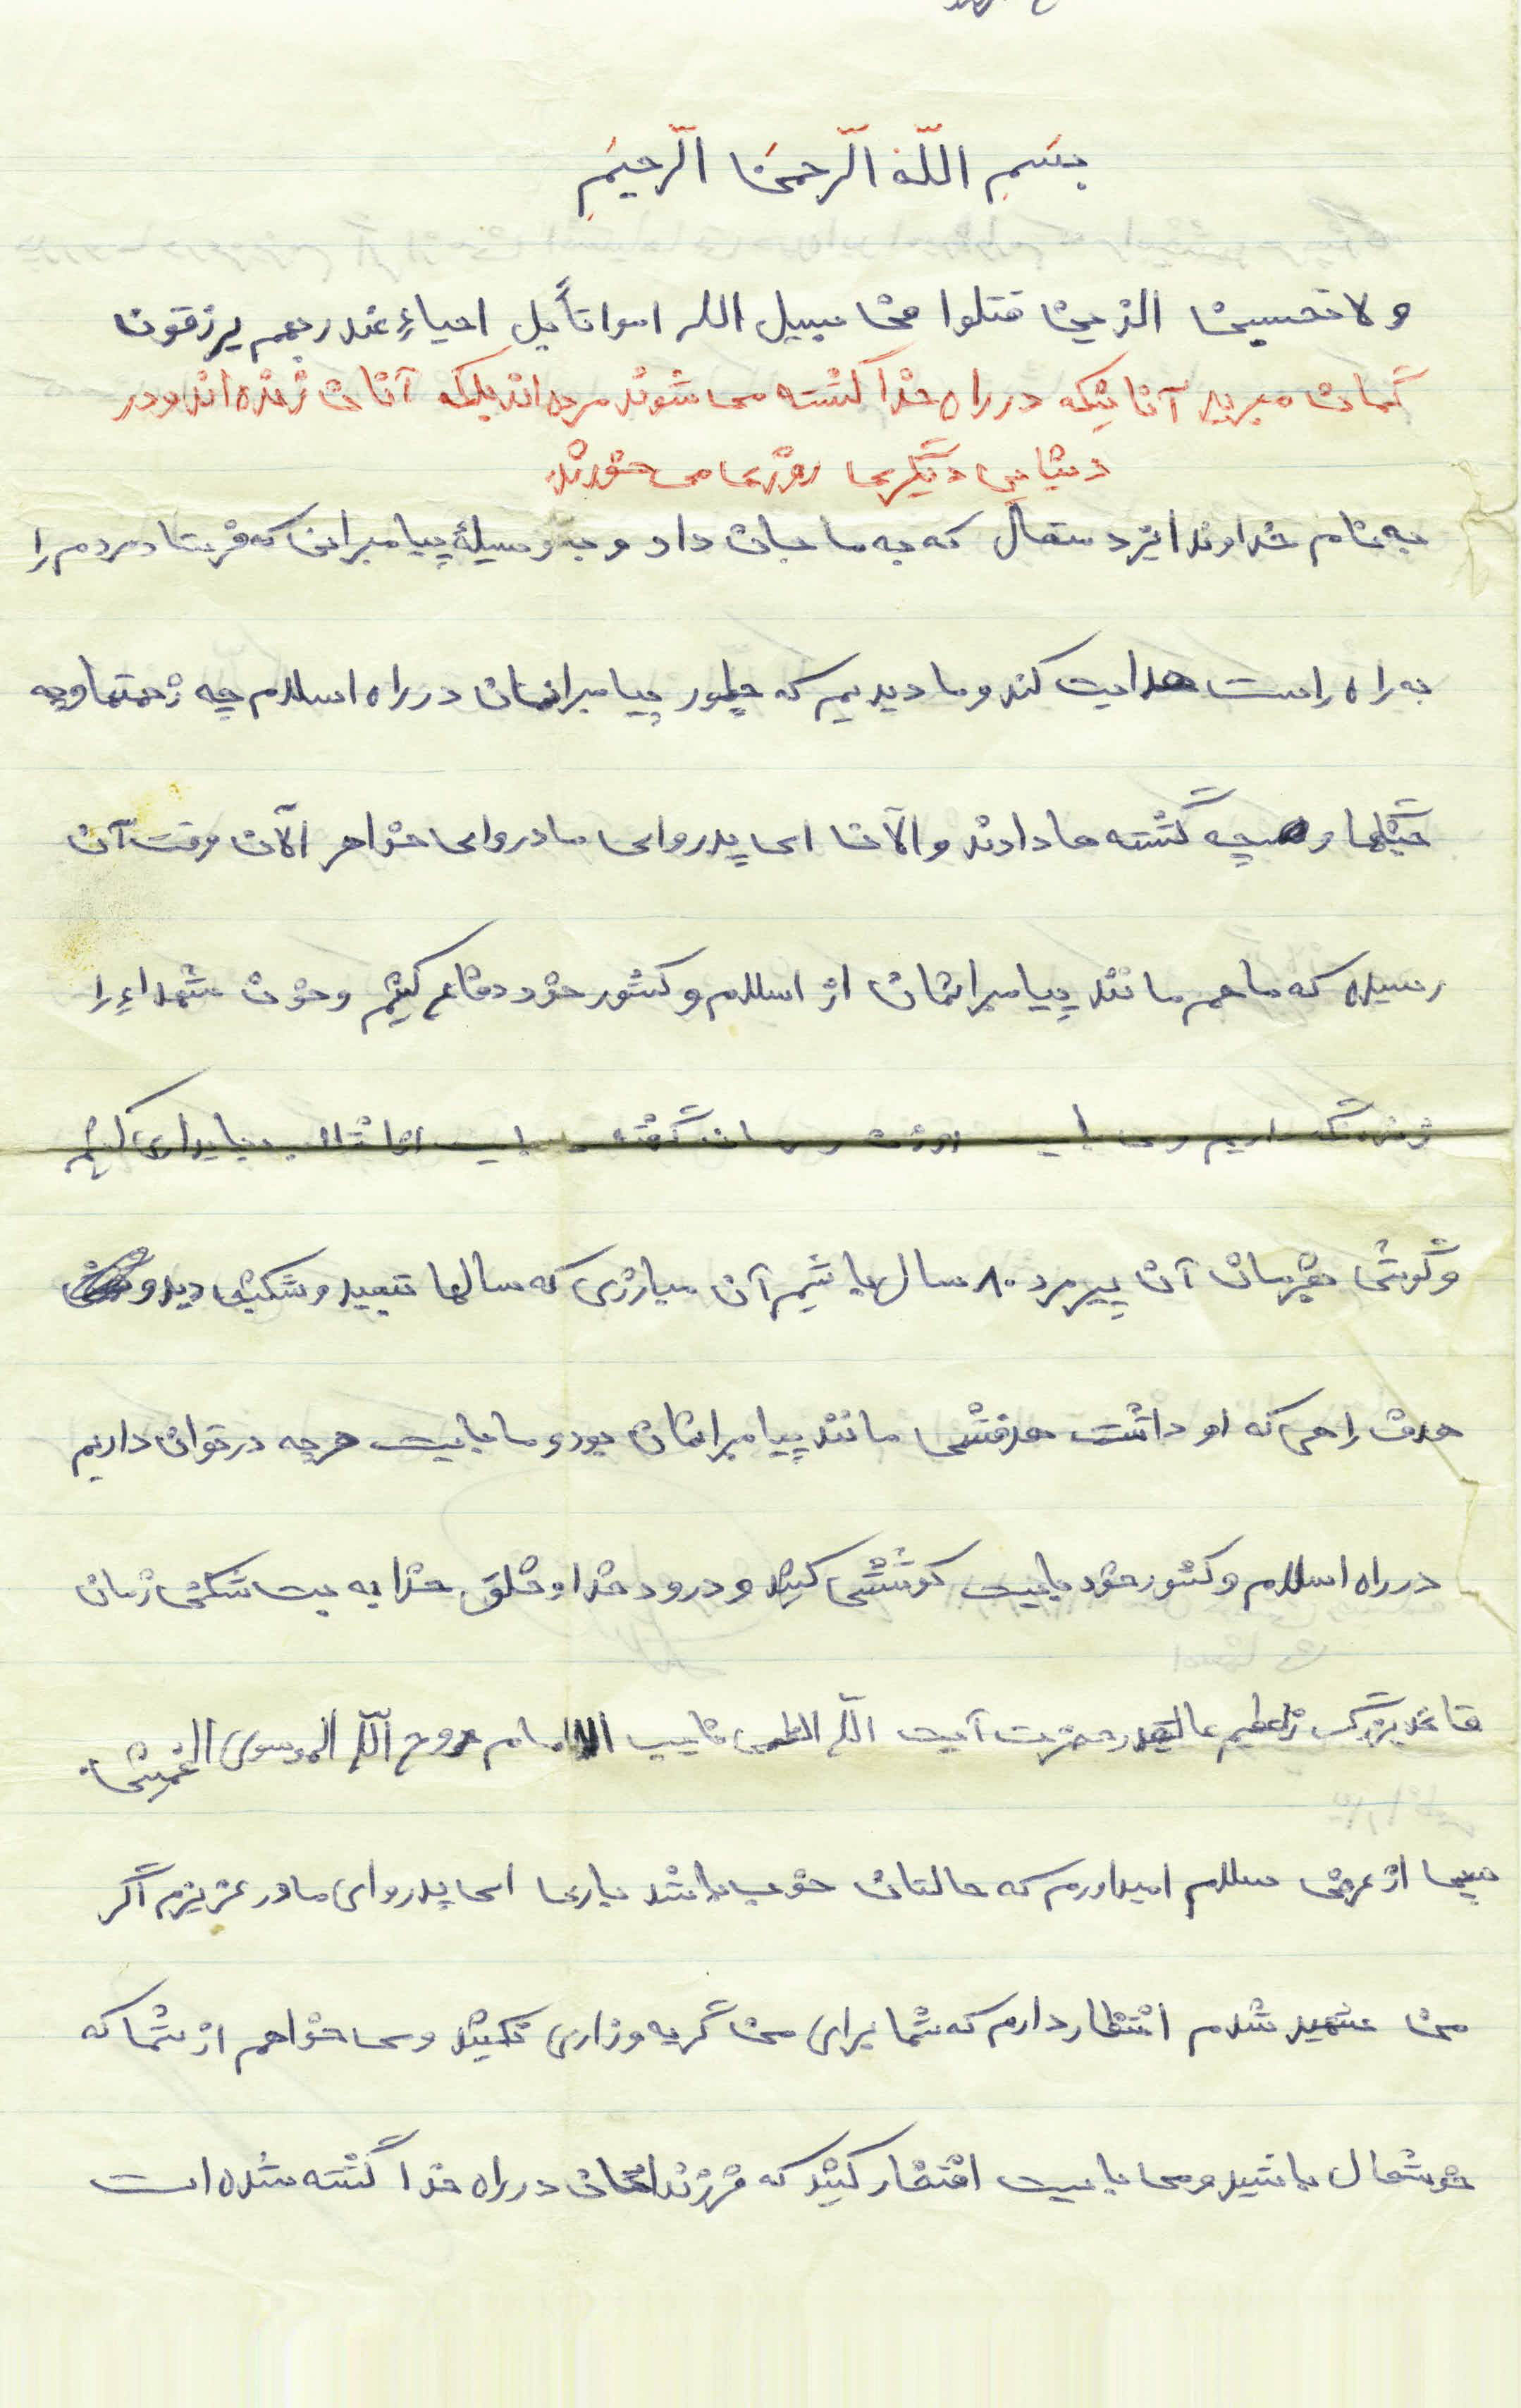 بسم اللّه الرّحمن الرّحیم
ولا تحسبن الذین قتلوا فی سبیل الله امواتاً بل احیاءِ عند ربهم یرزقون
گمان مبرید آنانیکه در راه خدا کشته می شوند مرده اند بلکه آنان زنده اند و در
دنیایی دیگری روزی می خورند
به نام خداوند ایزد متعال که به ما جان داد و به وسیلۀ پیامبرانی که فرستاد مردم را
به راه راست هدایت کند و ما دیدیم که چطور پیامبرانمان در راه اسلام چه زحمتها و چه
جنگها و چه کشته ها دادند و الآن ای پدر و ای مادر و ای خواهر الآن وقت آن
رسیده که ما هم مانند پیامبرانمان از اسلام و کشور خود دفاع کنیم و خون شهداءِ را
زنده نگه داریم و می بایست پایداری کنیم
و گوش بفرمان آن پیر مرد ۸۰ ساله باشیم آن مبارزی که سالها تبعید و شکنجه دید و
هدف راهی که او داشت هدفش مانند پیامبرانمان بود و ما بایست هر چه در توان داریم
در راه اسلام و کشور خود بایست کوشش کنید و درود خدا و خلق خدا به بت شکن زمان
قائد بزرگ عظیم عالیقدر حضرت آیت اللّه العظمی نایب الامام روح اللّه الموسوی الخمینی.
پس از عرض سلام امیداورم که حالتان خوب باشد باری ای پدر و ای مادر عزیزم اگر
من شهید شدم انتظار دارم که شما برای من گریه و زاری نکنید و می خواهم از شما که
خوشحال باشید و می بایست افتخار کنید که فرزندتان در راه خدا کشته شده است